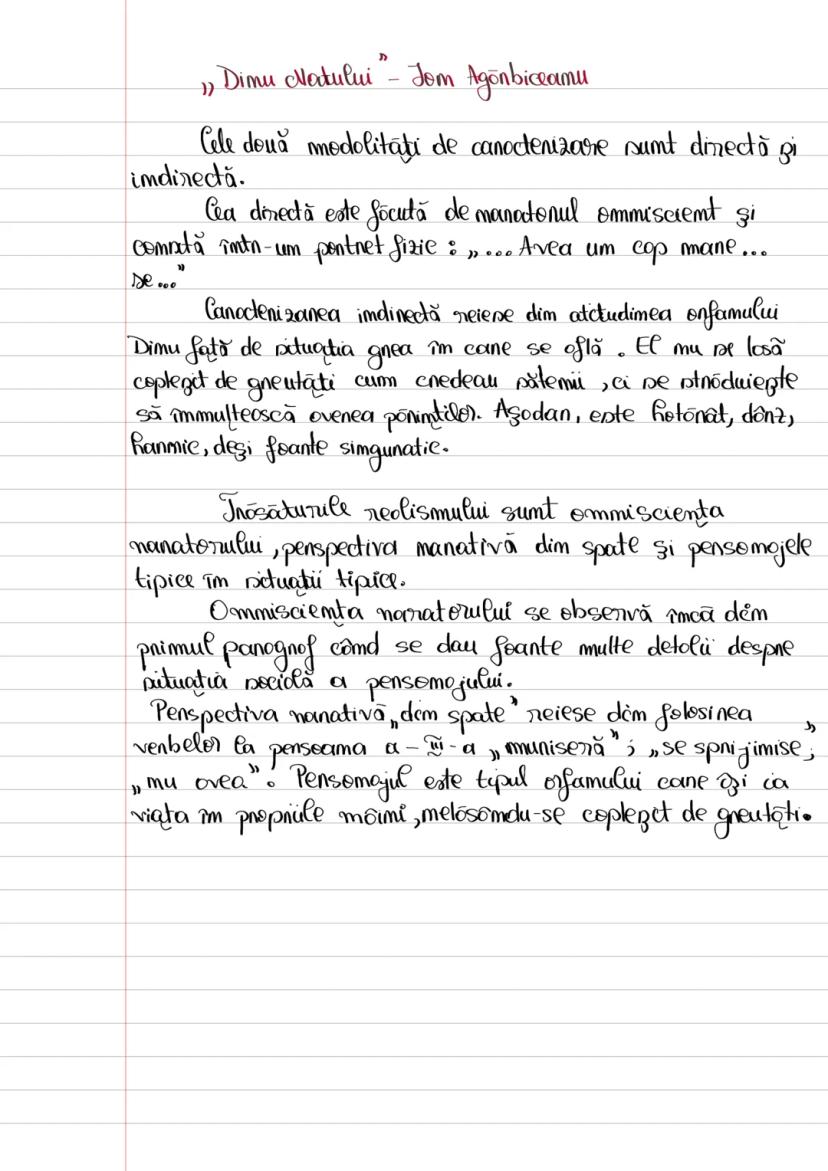 „Dinu Natului” - Ion Agârbiceanu
Cele două modalități de caracterizare sunt directă și
indirectă.
Cea directă este făcută de naratorul omniscient și
constă într-un portret fizic : „... Avea un cap mare...
se...”
Caracterizarea indirectă reiese din atitudinea orfanului
Dinu față de situația grea în care se află. El nu se lasă
copleșit de greutăți cum credeau sătenii, ci se străduiește
să înmulțească averea părinților. Așadar, este hotărât, dârz,
harnic, deși foarte singuratic.
Trăsăturile realismului sunt omnisciența
naratorului, perspectiva narativă din spate și personajele
tipice în situații tipice.
Omnisciența naratorului se observă încă din
primul paragraf când se dau foarte multe detalii despre
situația socială a personajului.
Perspectiva narativă „din spate” reiese din folosirea
verbelor la persoana a-III-a „muriseră”; „se sprijinise;”
„nu avea”. Personajul este tipul orfanului care își ia
viața în propriile mâini, nelăsându-se copleșit de greutăți.